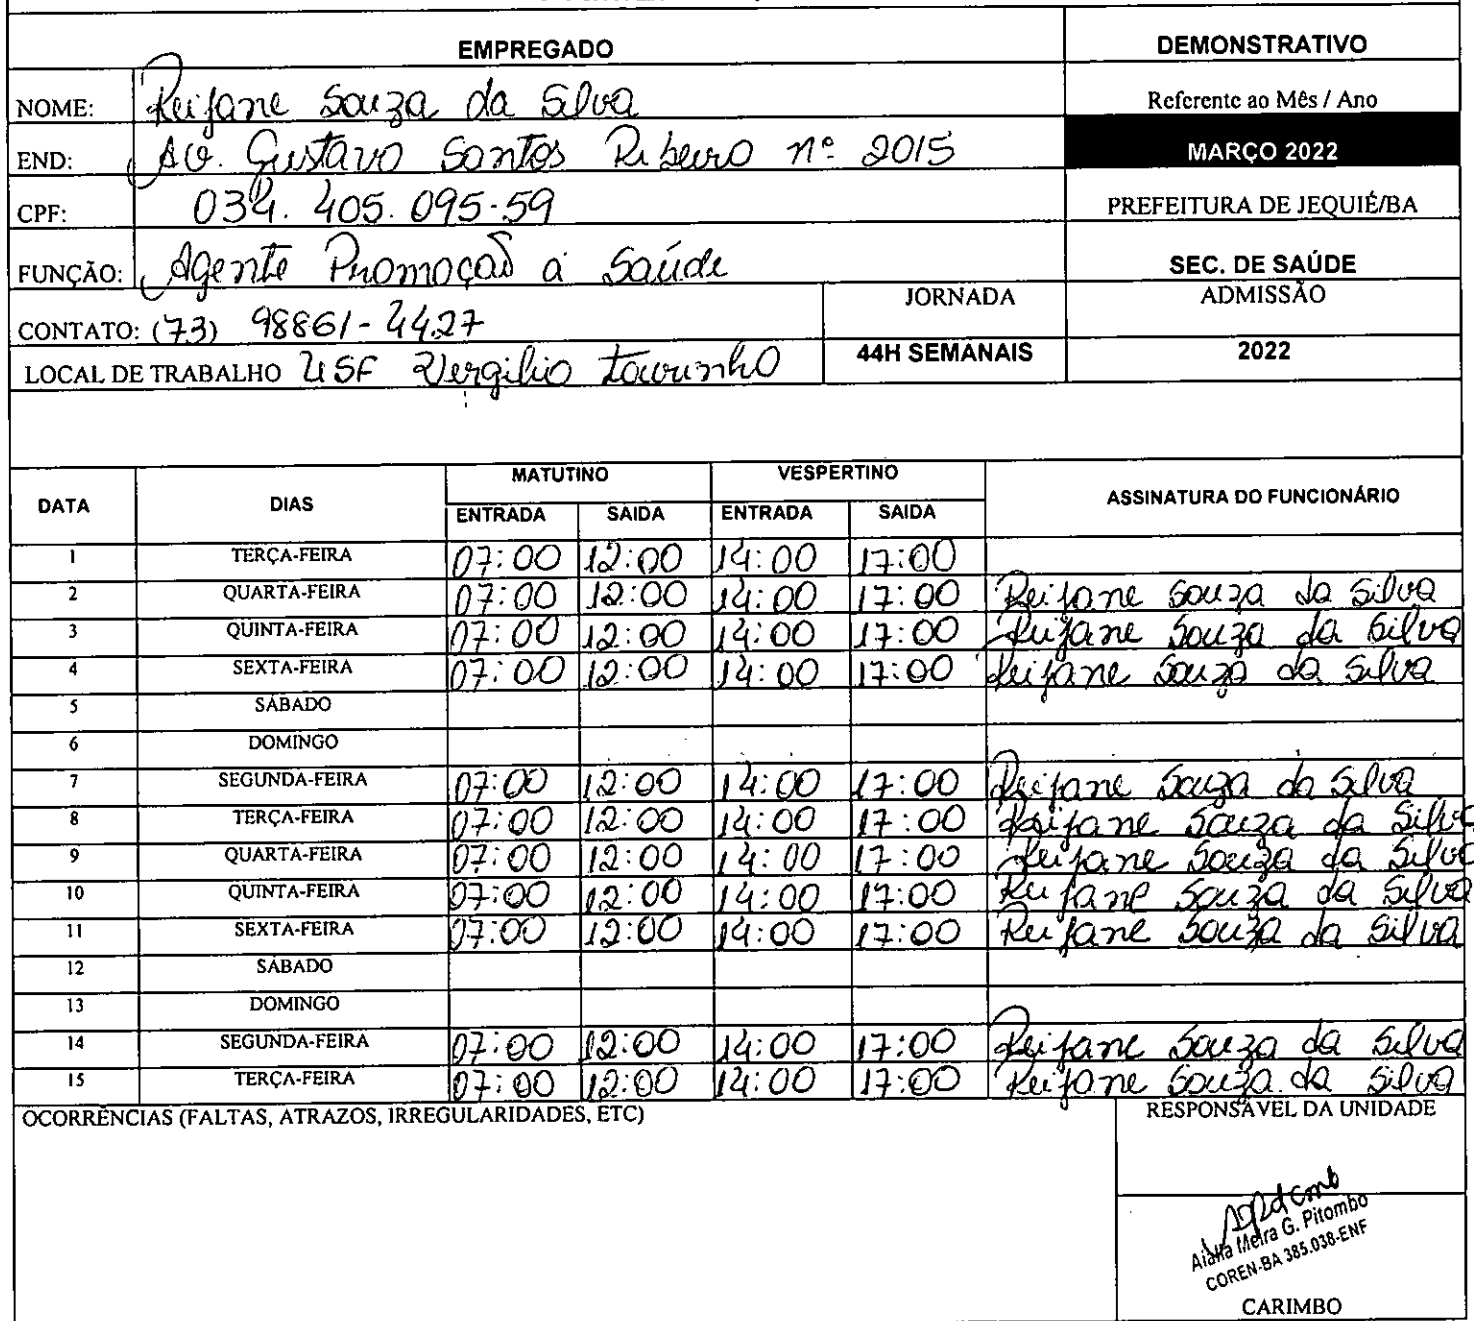 EMPREGADO DEMONSTRATIVO
NOME: Reijane Souza da Silva Referente ao Mês / Ano
END: Av. Gustavo Santos Ribeiro nº 2015 MARÇO 2022
CPF: 034.405.095-59 PREFEITURA DE JEQUIÉ/BA
FUNÇÃO: Agente Promoção a Saúde SEC. DE SAÚDE
JORNADA ADMISSÃO
CONTATO: (73) 98861-4427
LOCAL DE TRABALHO USF Vergilio Tourinho 44H SEMANAIS 2022
MATUTINO VESPERTINO
DATA DIAS ASSINATURA DO FUNCIONÁRIO
ENTRADA SAIDA ENTRADA SAIDA
1 TERÇA-FEIRA 07:00 12:00 14:00 17:00
2 QUARTA-FEIRA 07:00 12:00 14:00 17:00 Reijane Souza da Silva
3 QUINTA-FEIRA 07:00 12:00 14:00 17:00 Reijane Souza da Silva
4 SEXTA-FEIRA 07:00 12:00 14:00 17:00 Reijane Souza da Silva
5 SÁBADO
6 DOMINGO
7 SEGUNDA-FEIRA 07:00 12:00 14:00 17:00 Reijane Souza da Silva
8 TERÇA-FEIRA 07:00 12:00 14:00 17:00 Reijane Souza da Silva
9 QUARTA-FEIRA 07:00 12:00 14:00 17:00 Reijane Souza da Silva
10 QUINTA-FEIRA 07:00 12:00 14:00 17:00 Reijane Souza da Silva
11 SEXTA-FEIRA 07:00 12:00 14:00 17:00 Reijane Souza da Silva
12 SÁBADO
13 DOMINGO
14 SEGUNDA-FEIRA 07:00 12:00 14:00 17:00 Reijane Souza da Silva
15 TERÇA-FEIRA 07:00 12:00 14:00 17:00 Reijane Souza da Silva
OCORRÊNCIAS (FALTAS, ATRAZOS, IRREGULARIDADES, ETC) RESPONSÁVEL DA UNIDADE
Meira G. Pitombo
COREN-BA 385.038-ENF
CARIMBO